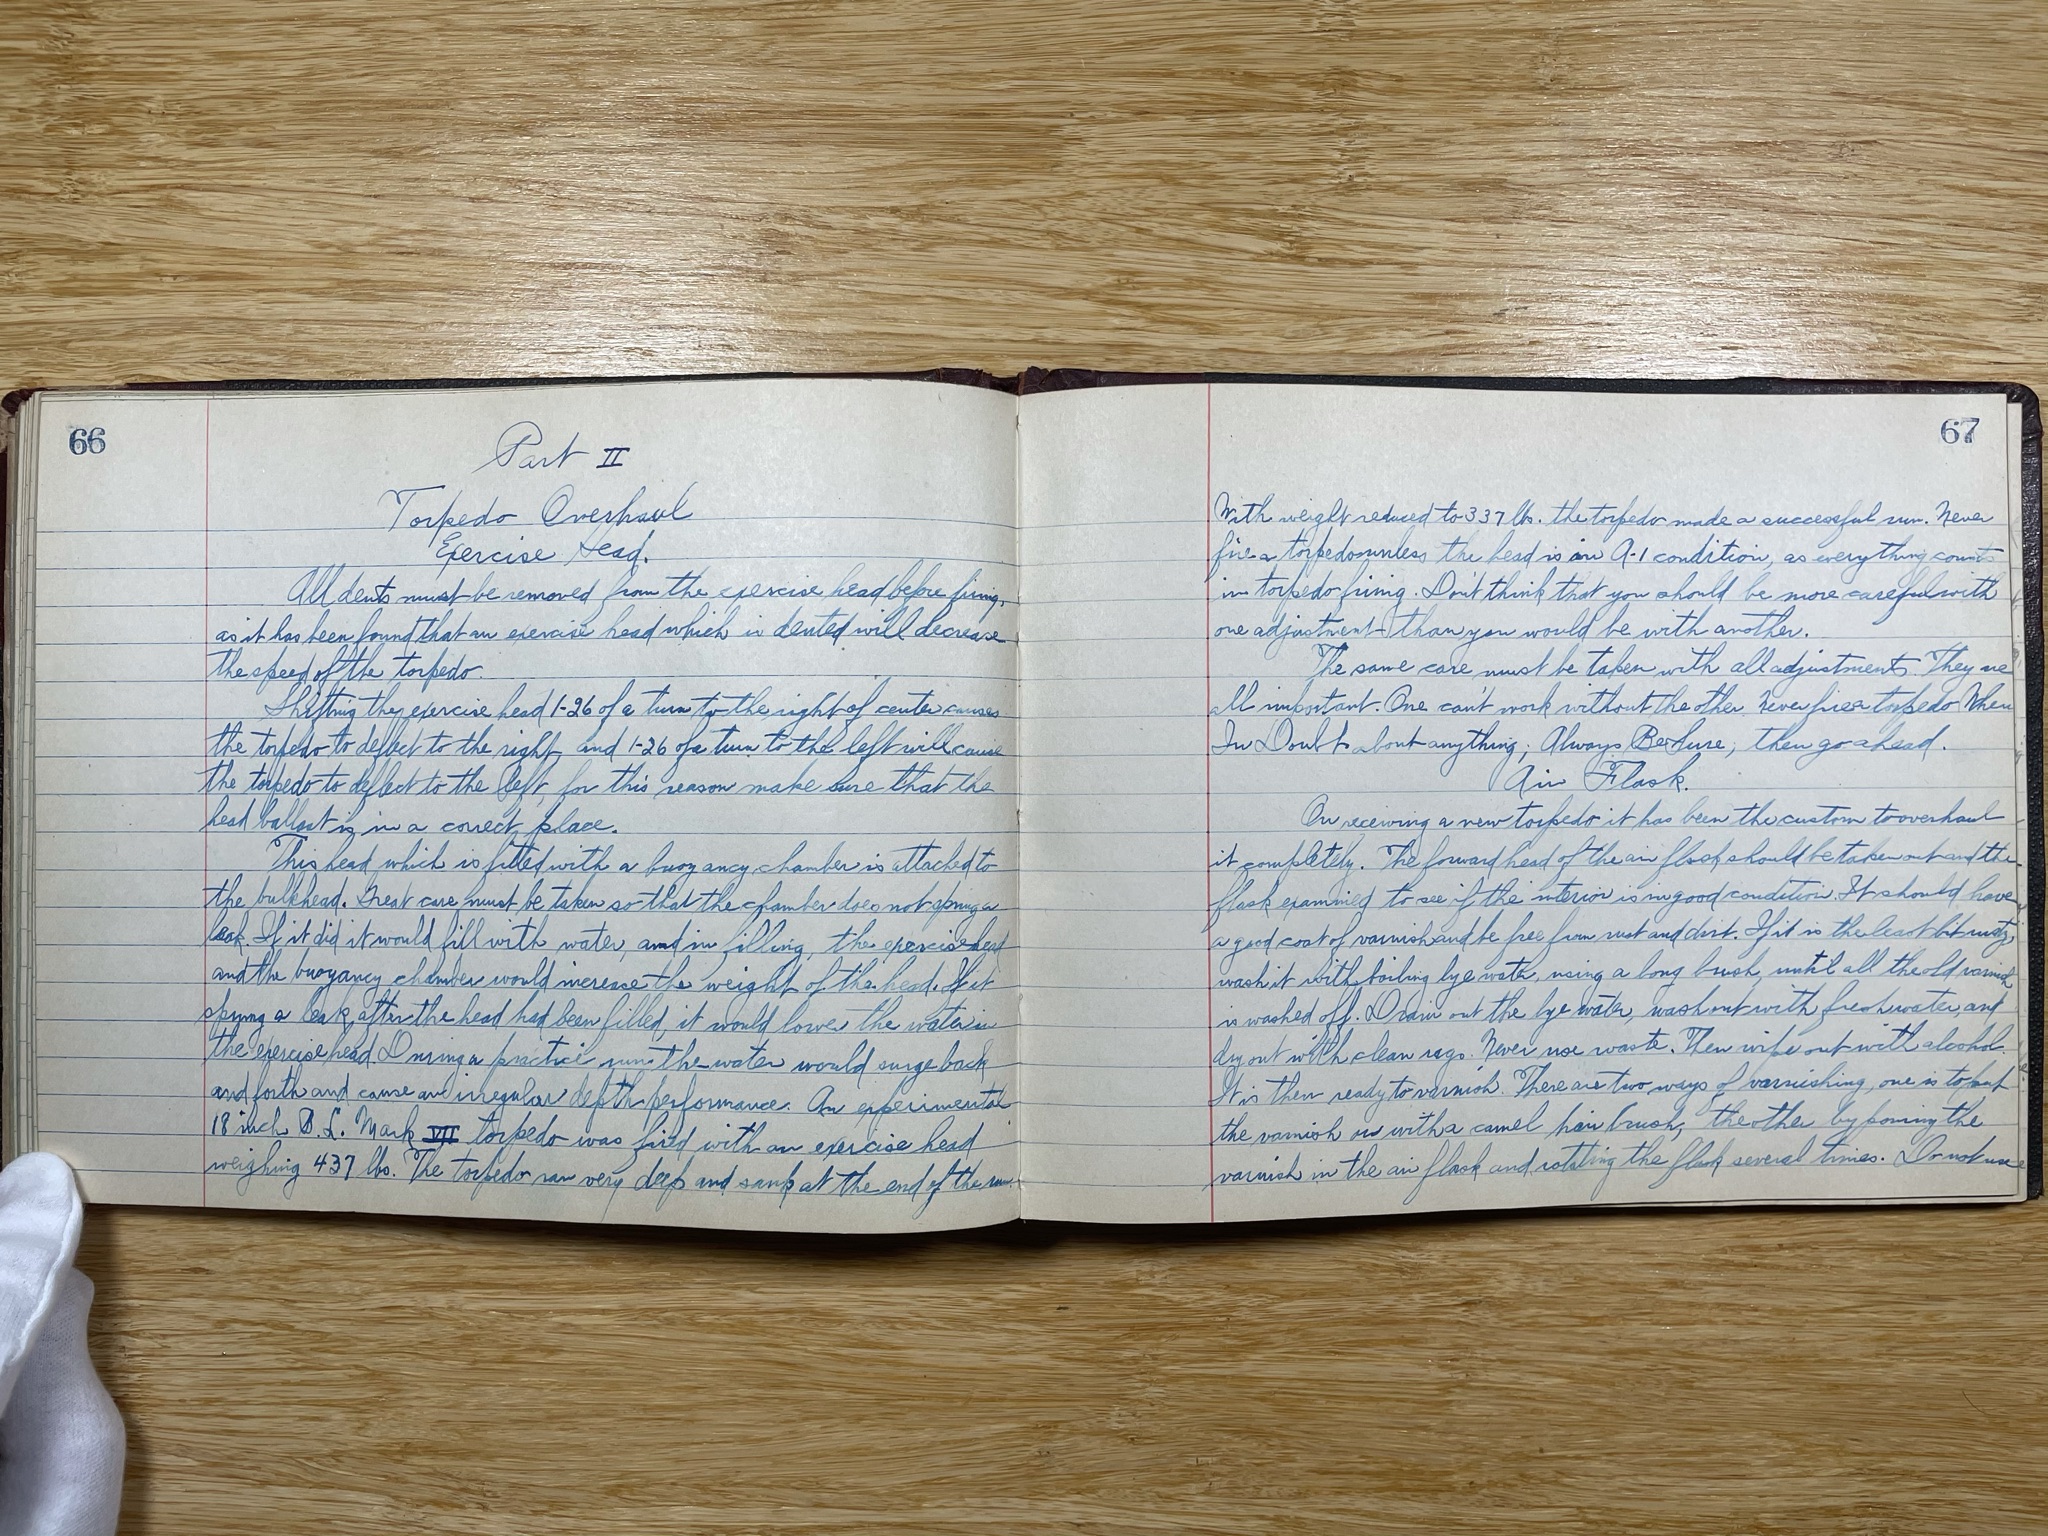 66
Part II
Torpedo Overhaul
Exercise Head.
All dents must be removed from the exercise head before firing,
as it has been found that an exercise head which is dented will decrease
the speed of the torpedo.
Shifting the exercise head 1-26 of a turn to the right of center causes
the torpedo to deflect to the right, and 1-26 of a turn to the left will cause
the torpedo to deflect to the left, for this reason make sure that the
head ballast is in a correct place.
This head which is fitted with a buoyancy chamber is attached to
the bulkhead. Great care must be taken so that the chamber does not spring a
leak. If it did it would fill with water, and in filling, the exercise head
and the buoyancy chamber would increase the weight of the head. If it
sprung a leak, after the head had been filled, it would lower the water in
the exercise head. During a practice run the water would surge back
and forth and cause an irregular depth performance. An experimental
18 inch B.L. Mark VII torpedo was fired with an exercise head
weighing 437 lbs. The torpedo ran very deep and sank at the end of the run.
67
With weight reduced to 337 lbs. the torpedo made a successful run. Never
fire a torpedo unless the head is in A-1 condition, as everything counts
in torpedo firing. Don't think that you should be more careful with
one adjustment than you would be with another.
The same care must be taken with all adjustments. They are
all important. One can't work without the other. Never fire a torpedo When
In Doubt about anything; Always Be Sure, then go ahead.
Air Flask.
On receiving a new torpedo it has been the custom to overhaul
it completely. The forward head of the air flask should be taken out and the
flask examined to see if the interior is in good condition. It should have
a good coat of varnish and be free from rust and dirt. If it is the least bit rusty,
wash it with boiling lye water, using a long brush, until all the old varnish
is washed off. Drain out the lye water, wash out with fresh water, and
dry out with clean rags. Never use waste. Then wipe out with alcohol.
It is then ready to varnish. There are two ways of varnishing, one is to put
the varnish on with a camel hair brush, the other by pouring the
varnish in the air flask and rotating the flask several times. Do not use